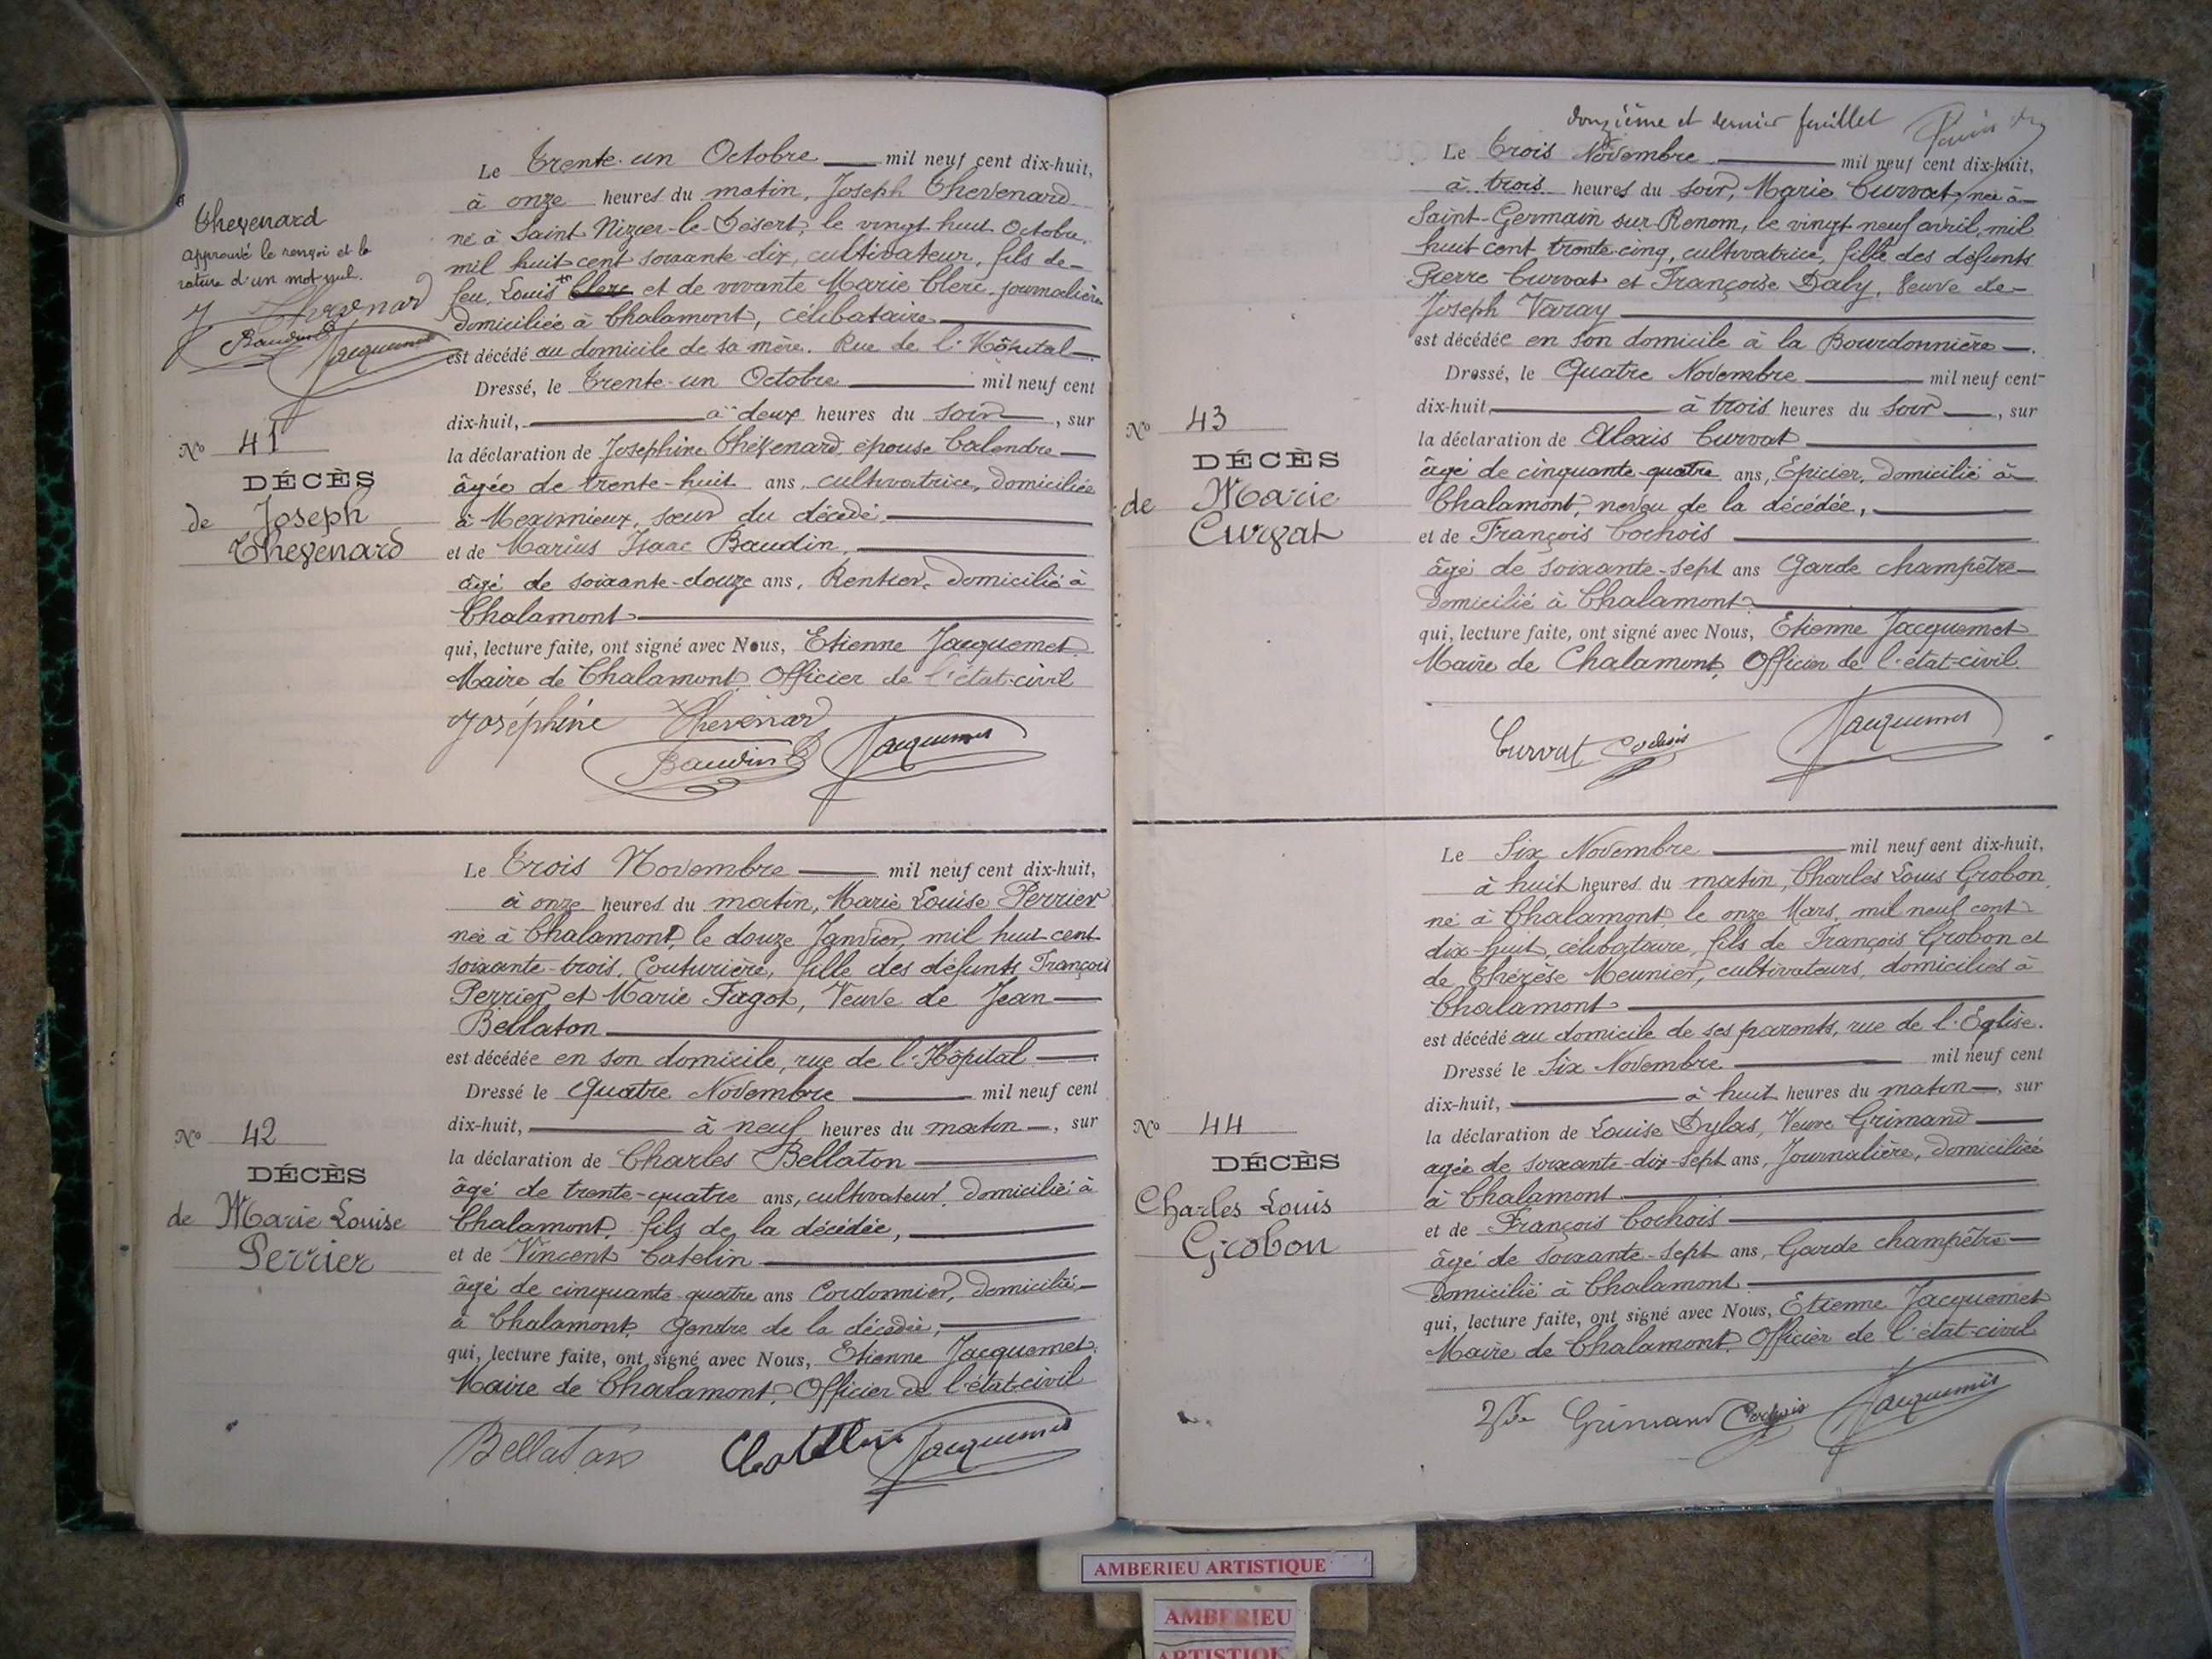 Thevenard
approuvé le renvoi et la
rature d'un mot nul.
J Thevenard
Baudin
Jacquemet
Le Trente-un Octobre mil neuf cent dix-huit,
à onze heures du matin, Joseph Thevenard
né à Saint Nizier-le-Désert, le vingt huit Octobre,
mil huit cent soixante-dix, cultivateur, fils de
feu, Louis Clerc et de vivante Marie Clerc journalière
domiciliée à Chalamont, célibataire
est décédé au domicile de sa mère. Rue de l'Hôpital.
Dressé, le Trente-un Octobre mil neuf cent
dix-huit, à deux heures du soir, sur
la déclaration de Josephine Thevenard, épouse Calendre
âgée de trente-huit ans, cultivatrice, domiciliée
à Meximieux, sœur du décédé
et de Marius Isaac Baudin,
âgé de soixante-douze ans, Rentier, domicilié à
Chalamont
qui, lecture faite, ont signé avec Nous, Etienne Jacquemet
Maire de Chalamont, Officier de l'état-civil
Joséphine Thevenard
Baudin Jacquemet
No 41
DÉCÈS
de Joseph
Thevenard
Le Trois Novembre mil neuf cent dix-huit,
à onze heures du matin, Marie Louise Perrier
née à Chalamont, le douze Janvier, mil huit cent
soixante-trois, Couturière, fille des défunts François
Perrier et Marie Fagot, Veuve de Jean
Bellaton
est décédée en son domicile, rue de l'Hôpital.
Dressé le Quatre Novembre mil neuf cent
dix-huit, à neuf heures du matin, sur
la déclaration de Charles Bellaton
âgé de trente-quatre ans, cultivateur, domicilié à
Chalamont, fils de la décédée,
et de Vincent Catelin
âgé de cinquante-quatre ans Cordonnier, domicilié
à Chalamont, Gendre de la décédée,
qui, lecture faite, ont signé avec Nous, Etienne Jacquemet,
Maire de Chalamont, Officier de l'état-civil
Bellaton Chatelin Jacquemet
No 42
DÉCÈS
de Marie Louise
Perrier
douzième et dernier feuillet
Le Trois Novembre mil neuf cent dix-huit,
à trois heures du soir, Marie Curvat, née à
Saint-Germain sur-Renom, le vingt neuf avril, mil
huit cent trente-cinq, cultivatrice, fille des défunts
Pierre Curvat et Françoise Daly, Veuve de
Joseph Varay
est décédée en son domicile à la Bourdonnière.
Dressé, le Quatre Novembre mil neuf cent
dix-huit, à trois heures du soir, sur
la déclaration de Alexis Curvat
âgé de cinquante-quatre ans, Epicier, domicilié à
Chalamont, neveu de la décédée,
et de François Cochois
âgé de soixante-sept ans Garde champêtre
domicilié à Chalamont
qui, lecture faite, ont signé avec Nous, Etienne Jacquemet
Maire de Chalamont, Officier de l'état-civil.
Curvat Cochois Jacquemet
No 43
DÉCÈS
de Marie
Curvat
Le Six Novembre mil neuf cent dix-huit,
à huit heures du matin, Charles Louis Grobon,
né à Chalamont, le onze Mars, mil neuf cent
dix-huit, célibataire, fils de François Grobon et
de Thérèse Meunier, cultivateurs, domiciliés à
Chalamont
est décédé au domicile de ses parents, rue de l'Eglise.
Dressé le Six Novembre mil neuf cent
dix-huit, à huit heures du matin, sur
la déclaration de Louise Dylas, Veuve Grimand
agée de soixante-dix-sept ans, Journalière, domiciliée
à Chalamont
et de François Cochois
âgé de soixante-sept ans, Garde champêtre
domicilié à Chalamont
qui, lecture faite, ont signé avec Nous, Etienne Jacquemet
Maire de Chalamont, Officier de l'état-civil
Vve Grimand Cochois Jacquemet
No 44
DÉCÈS
Charles Louis
Grobon
AMBERIEU ARTISTIQUE
AMBERIEU
ARTISTIQUE